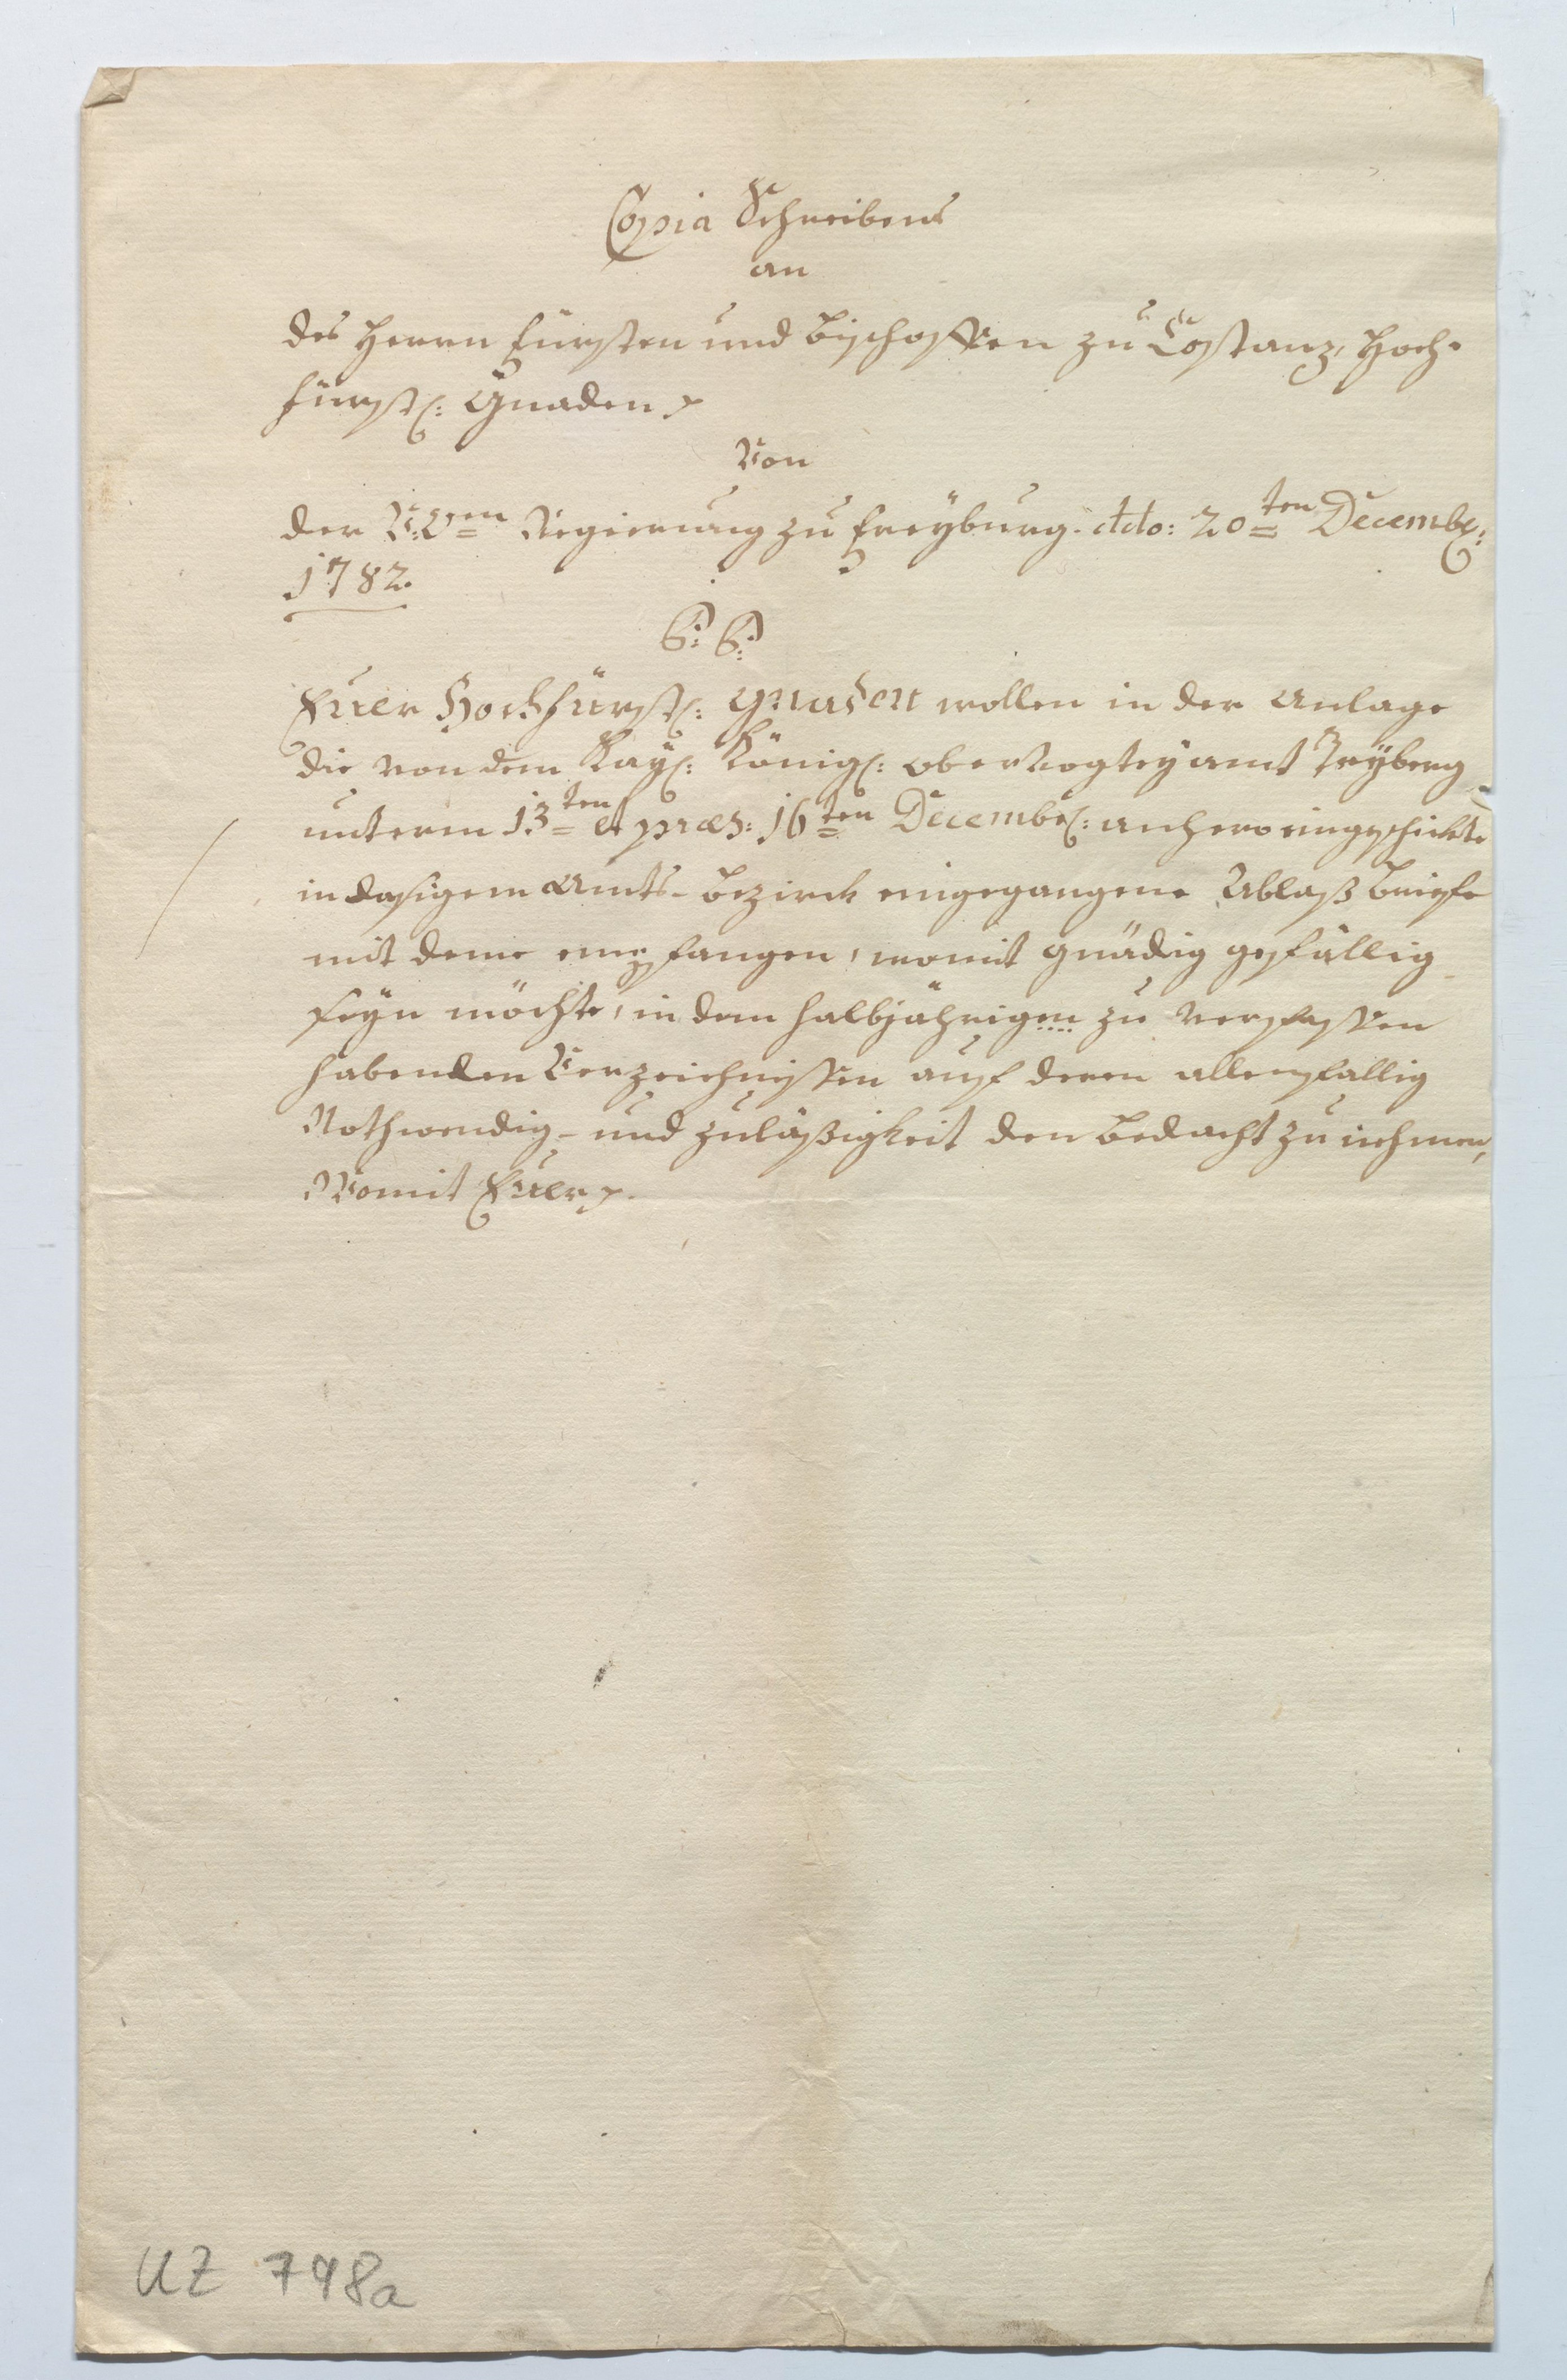 Copia Schreibens
an
des Herrn Fürsten und Bischoffen zu Costanz, Hoch-
fürstl: Gnaden
Von
der V:Ö:en Regierung zu Freyburg. ddo: 20ten Decembr:
1782.
P: P:
Euer Hochfürstl: Gnaden wollen in der Anlage
die von dem Kayl: Königl: Obervogteyamt Tryberg
unterm 13ten et præs: 16ten Decembr: anhero eingeschickte
in dasigem Amts-Bezirck eingegangene Ablaß Briefe
mit deme empfangen, womit gnädig gefällig
seyn möchte, in dem halbjährigen zu verfassen
habenden Verzeichnissen auf deren allenfällig
Nothwendig- und Zuläßigkeit den Bedacht zu nehmen,
Womit Euer
UZ 798a